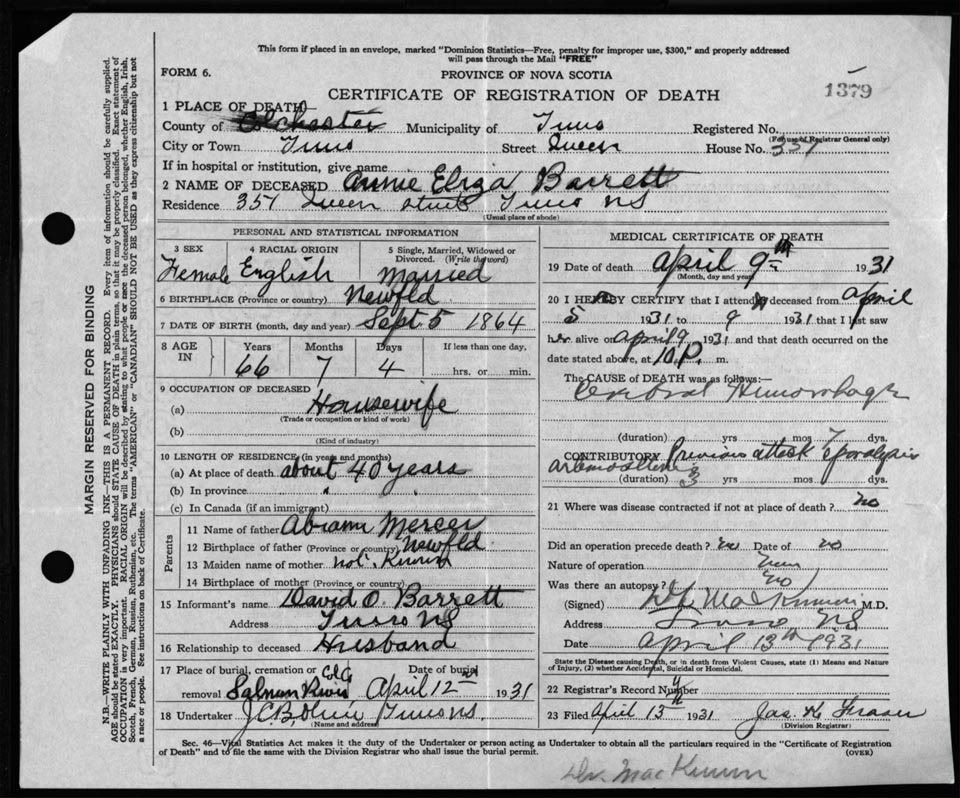 This form if placed in an envelope, marked "Dominion Statistics—Free, penalty for improper use, $300," and properly addressed
will pass through the Mail "FREE"
FORM 6.
PROVINCE OF NOVA SCOTIA
CERTIFICATE OF REGISTRATION OF DEATH
1379
1 PLACE OF DEATH
County of Colchester Municipality of Truro Registered No.
(For use of Registrar General only)
City or Town Truro Street Queen House No. 357
If in hospital or institution, give name
2 NAME OF DECEASED Annie Eliza Barrett
Residence 357 Queen Street Truro NS
(Usual place of abode)
PERSONAL AND STATISTICAL INFORMATION
3 SEX 4 RACIAL ORIGIN 5 Single, Married, Widowed or Divorced. (Write the word)
Female English Married
6 BIRTHPLACE (Province or country) Newfld
7 DATE OF BIRTH (month, day and year) Sept 5 1864
8 AGE IN Years Months Days If less than one day.
66 7 4 hrs. or min.
9 OCCUPATION OF DECEASED
(a) Housewife
(Trade or occupation or kind of work)
(b)
(Kind of industry)
10 LENGTH OF RESIDENCE (in years and months)
(a) At place of death about 40 years
(b) In province " "
(c) In Canada (if an immigrant)
Parents
11 Name of father Abram Mercer
12 Birthplace of father (Province or country) Newfld
13 Maiden name of mother not Known
14 Birthplace of mother (Province or country)
15 Informant's name David O. Barrett
Address Truro NS
16 Relationship to deceased Husband
17 Place of burial, cremation or removal Salmon River Date of burial April 12 1931
18 Undertaker Truro NS.
(Name and address)
MEDICAL CERTIFICATE OF DEATH
19 Date of death April 9th 1931
(Month, day and year)
20 I HEREBY CERTIFY that I attended deceased from April
5 1931 to 9 1931 that I last saw
her alive on April 9 1931 and that death occurred on the
date stated above, at 10 P. m.
The CAUSE of DEATH was as follows:—
Cerebral Hemorrhage
(duration) yrs mos 7 dys.
CONTRIBUTORY Previous attack paralysis
(duration) 3 yrs mos dys.
21 Where was disease contracted if not at place of death? no
Did an operation precede death? no Date of no
Nature of operation
Was there an autopsy? no
(Signed) MacKinnon M.D.
Address Truro NS
Date April 13th 1931
State the Disease causing Death, or in death from Violent Causes, state (1) Means and Nature
of Injury, (2) whether Accidental, Suicidal or Homicidal.
22 Registrar's Record Number
23 Filed April 13th 1931 Jas. K Fraser
(Division Registrar)
Sec. 46—Vital Statistics Act makes it the duty of the Undertaker or person acting as Undertaker to obtain all the particulars required in the "Certificate of Registration
of Death" and to file the same with the Division Registrar who shall issue the burial permit. (OVER)
Dr. MacKinnon
MARGIN RESERVED FOR BINDING
N.B.—WRITE PLAINLY WITH UNFADING INK—THIS IS A PERMANENT RECORD. Every item of information should be carefully supplied.
AGE should be stated EXACTLY. PHYSICIANS should STATE CAUSE OF DEATH in plain terms, so that it may be properly classified. Exact statement of
OCCUPATION is very important. RACIAL ORIGIN will be described by stating to what people or race the deceased person belonged, whether English, Irish,
Scotch, French, German, Russian, Ruthenian, etc. The terms "AMERICAN" or "CANADIAN" SHOULD NOT BE USED as they express citizenship but not
a race or people. See instructions on back of Certificate.